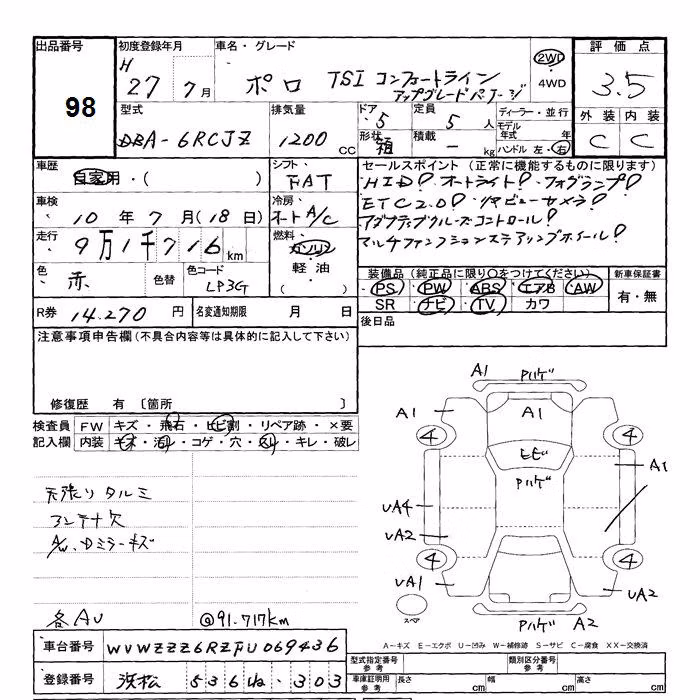 出品番号
98
初度登録年月
H 27 年 7 月
車名・グレード
ポロ TSI コンフォートライン
アップグレードパッケージ
2WD
・
4WD
評価点
3.5
外装 内装
C C
型式
DBA-6RCJZ
排気量
1200 CC
ドア
・5
形状
箱
定員
5 人
積載
- kg
ディーラー・並行
モデル年式 年
ハンドル 左・右
車歴
自家用・( )
車検
10 年 7 月(18 日)
走行
9万1千716 km
色
赤
色替
色コード
LP3G
シフト
FAT
冷房
オートA/C
燃料
ガソリン
・
軽油
( )
セールスポイント (正常に機能するものに限ります)
HID! オートライト! フォグランプ!
ETC2.0! リヤビューカメラ!
アダプティブクルーズコントロール!
マルチファンクションステアリングホイール!
装備品 (純正品に限り○をつけてください)
PS PW ABS エアB AW
SR ナビ TV カワ
新車保証書
有・無
R券 14,270 円
名変通知期限 月 日
後日品
注意事項申告欄 (不具合内容等は具体的に記入して下さい)
修復歴 有 〔箇所 〕
検査員記入欄
FW キズ・飛石・ヒビ割・リペア跡・×要
内装 キズ・汚レ・コゲ・穴・スレ・キレ・破レ
天張りタルミ
アンテナ欠
A/w、Dミラーキズ
各AU
@91.717km
A1 Pハゲ
A1 A1
4 4
ヒビ
Pハゲ
A1
UA4
UA2
4 4
UA1 UA2
スペア
Pハゲ A2
A-キズ E-エクボ U-凹み W-補修跡 S-サビ C-腐食 XX-交換済
車台番号 WVWZZZ6RZFU069436
登録番号 浜松 536 ね ・303
型式指定番号 参考
類別区分番号 参考
車庫証明用 参考
長さ cm
幅 cm
高さ cm